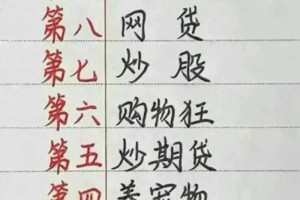 第八 网贷
第七 炒股
第六 购物狂
第五 炒期贷
第四 养宠物